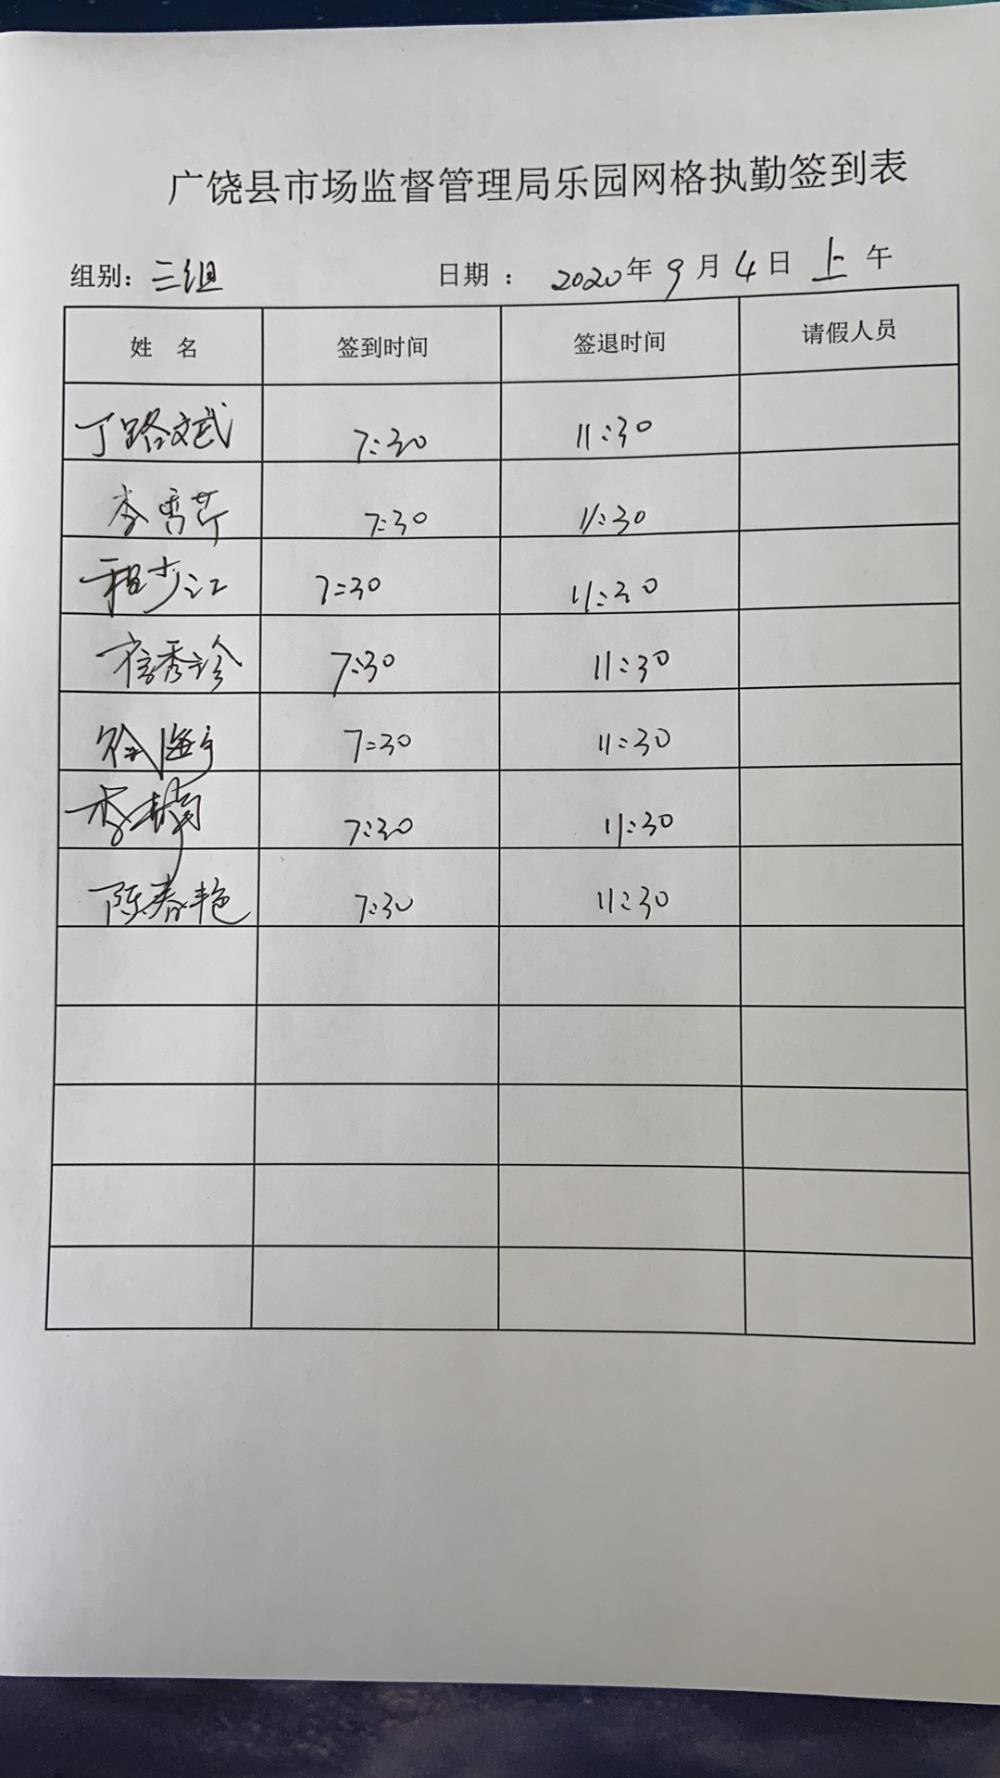 广饶县市场监督管理局乐园网格执勤签到表
组别：三组 日期： 2020年9月4日上午
姓 名 签到时间 签退时间 请假人员
丁路文武 7:30 11:30
李秀芹 7:30 11:30
程少江 7:30 11:30
崔秀珍 7:30 11:30
徐海宁 7:30 11:30
李楠 7:30 11:30
陈春艳 7:30 11:30